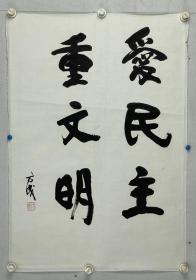 愛民主
重文明
方成